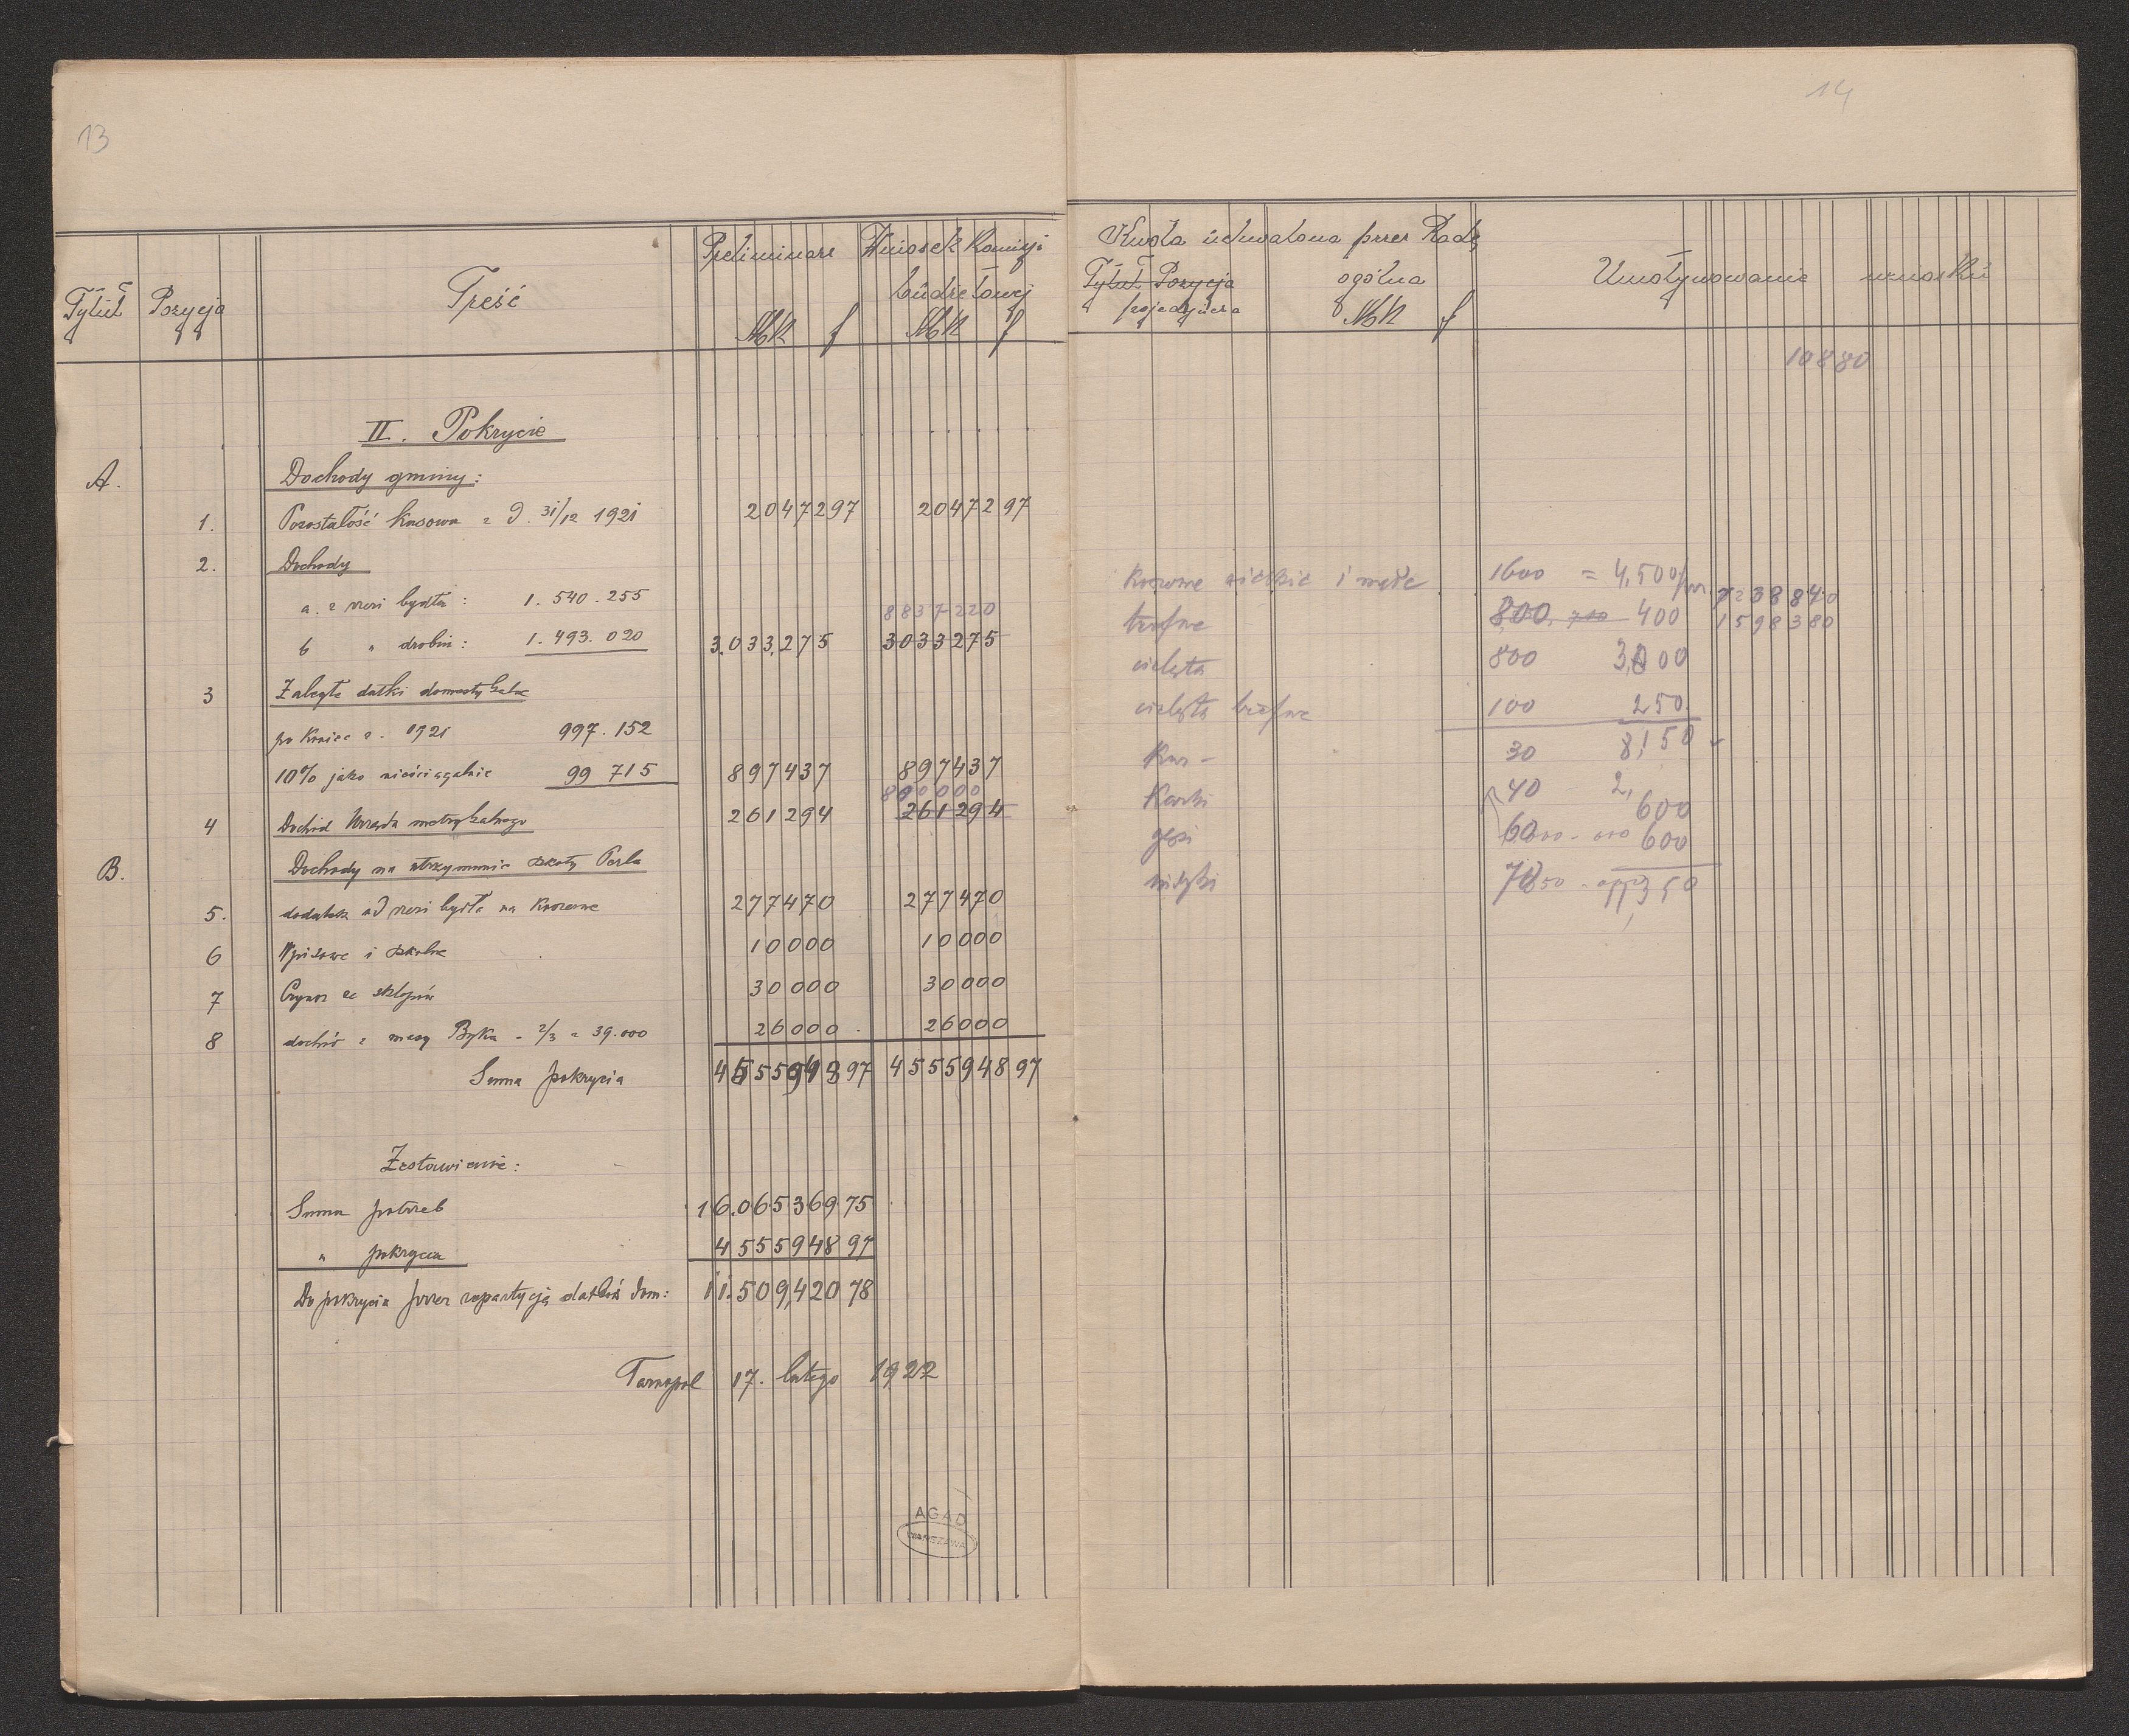 13
Tytuł Pozycja Treść Preliminarz Wniosek Komisji
budżetowej
Mk f Mk f
II. Pokrycie
A. Dochody gminy:
1. Pozostałość kasowa z d. 31/12 1921 20472 97 20472 97
2. Dochody
a. z rzezi bydła: 1.540.255 8837220
b " drobiu: 1.493.020 3.033.275 3033275
3 Zaległe datki domestykalne
po koniec r. 1921 997.152
10% jako nieściągalnie 99 715 897437 897437
800000
4 Dochód Urzędu metrykalnego 261294 261294
B. Dochody na utrzymanie szkoły Perla
5. dodatek od rzezi bydła na koszerne 277470 277470
6 Wpisowe i szkolne 10000 10000
7 Czynsz ze sklepów 30000 30000
8 dochód z masy Byka - 2/3 z 39.000 26000 26000
Suma pokrycia 4555948 97 4555948 97
Zestawienie:
Suma potrzeb 16.065369 75
" pokrycia 4555948 97
Do pokrycia przez repartycję datków dom: 11.509,420 78
Tarnopol 17. lutego 1922
AGAD
WARSZAWA
14
Kwota uchwalona przez Radę
Tytuł Pozycja ogólna Umotywowanie wniosku
pojedyńcza Mk f
10880
Koszerne wielkie i małe 1600 = 4,500 7238840
trefne 800 700 400 1598380
cielęta 800 3,000
cielęta trefne 100 250
30 8,150
40 2,
600
gęsi 60 600
indyki 70